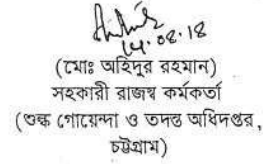 14.08.18
(মোঃ অহিদুর রহমান)
সহকারী রাজস্ব কর্মকর্তা
(শুল্ক গোয়েন্দা ও তদন্ত অধিদপ্তর,
চট্টগ্রাম)